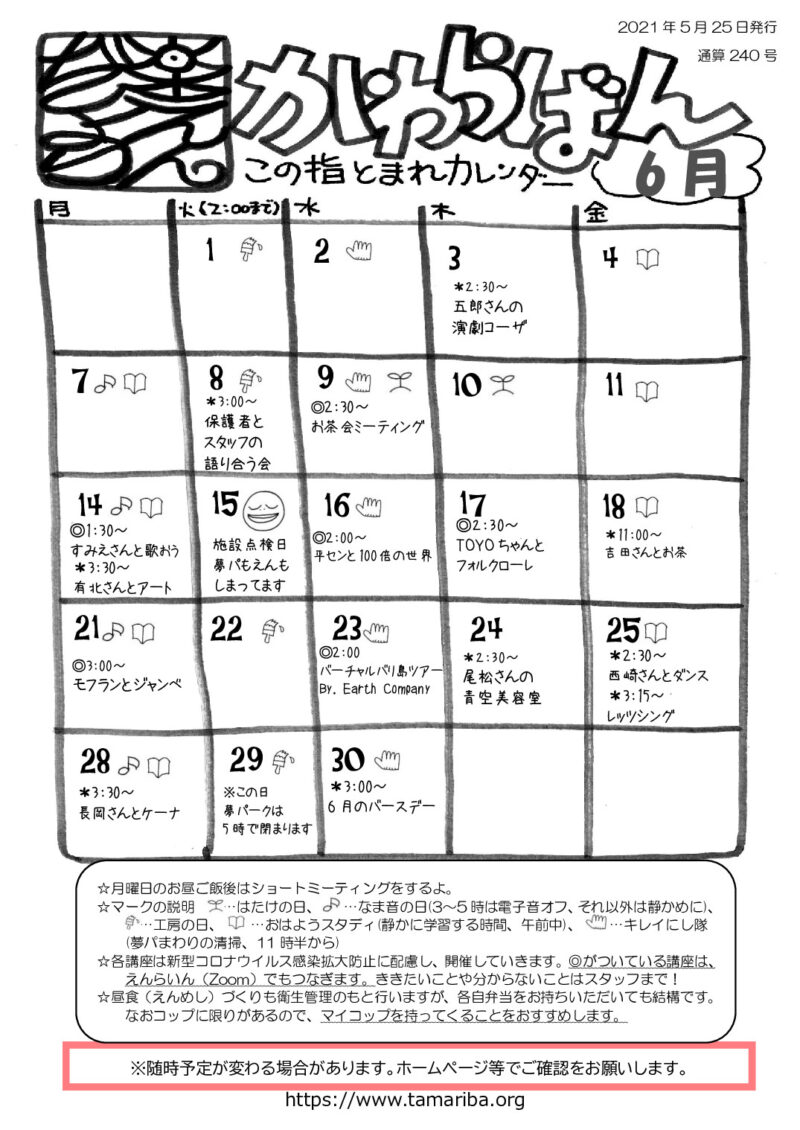 2021年5月25日発行
通算240号
えん
かわらばん
この指とまれカレンダー
6月
月 火(12:00まで) 水 木 金
1 2 3 4
*2:30～
五郎さんの
演劇コーザ
7 8 9 10 11
*3:00～
保護者と
スタッフの
語り合う会
◎2:30～
お茶会ミーティング
14 15 16 17 18
◎1:30～
すみえさんと歌おう
*3:30～
有北さんとアート
施設点検日
夢パもえんも
しまってます
◎2:00～
平センと100倍の世界
◎2:30～
TOYOちゃんと
フォルクローレ
*11:00～
吉田さんとお茶
21 22 23 24 25
◎3:00～
モフランとジャンベ
◎2:00
バーチャルバリ島ツアー
By. Earth Company
*2:30～
尾松さんの
青空美容室
*2:30～
西崎さんとダンス
*3:15～
レッツシング
28 29 30
*3:30～
長岡さんとケーナ
※この日
夢パークは
5時で閉まります
*3:00～
6月のバースデー
☆月曜日のお昼ご飯後はショートミーティングをするよ。
☆マークの説明 …はたけの日、 …なま音の日(3～5時は電子音オフ、それ以外は静かめに)、
…工房の日、 …おはようスタディ(静かに学習する時間、午前中)、 …キレイにし隊
(夢パまわりの清掃、11時半から)
☆各講座は新型コロナウイルス感染拡大防止に配慮し、開催していきます。◎がついている講座は、
えんらいん（Zoom）でもつなぎます。ききたいことや分からないことはスタッフまで！
☆昼食（えんめし）づくりも衛生管理のもと行いますが、各自弁当をお持ちいただいても結構です。
なおコップに限りがあるので、マイコップを持ってくることをおすすめします。
※随時予定が変わる場合があります。ホームページ等でご確認をお願いします。
https://www.tamariba.org